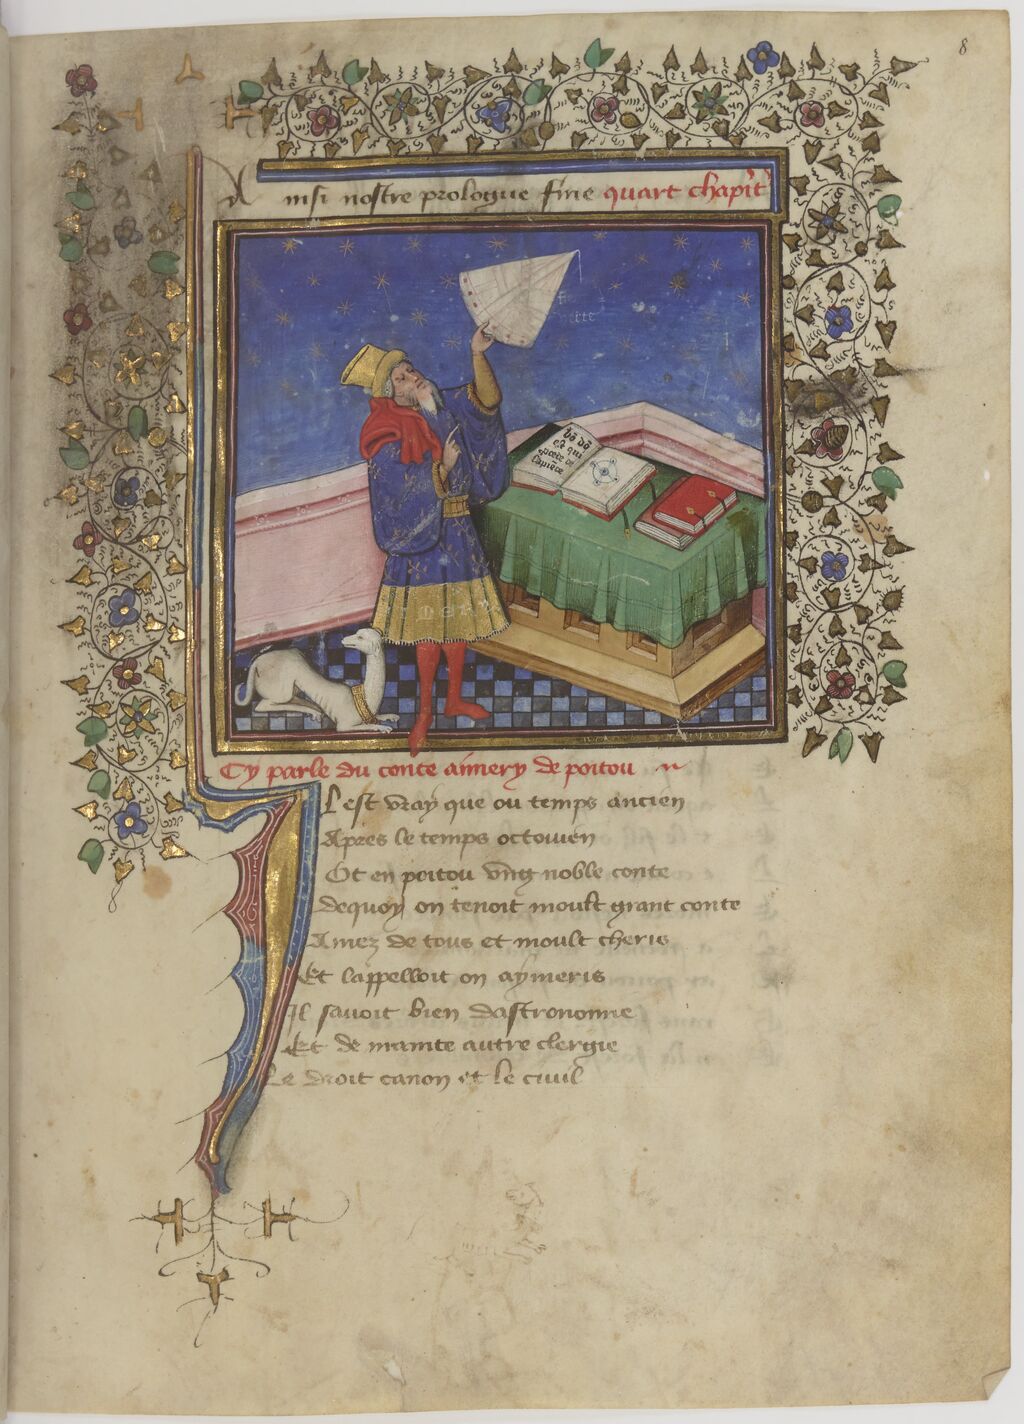 8
Ainsi nostre prologue fine quart chapit
Cy parle du conte aimery de poitou
Il est vray que ou temps ancien
Apres le temps octouien
Ot en poitou vng noble conte
dequoy on tenoit moult grant conte
Amez de tous et moult cheris
Et lappelloit on aymeris
Il sauoit bien dastronomie
Et de mainte autre clergie
Le droit canon et le ciuil